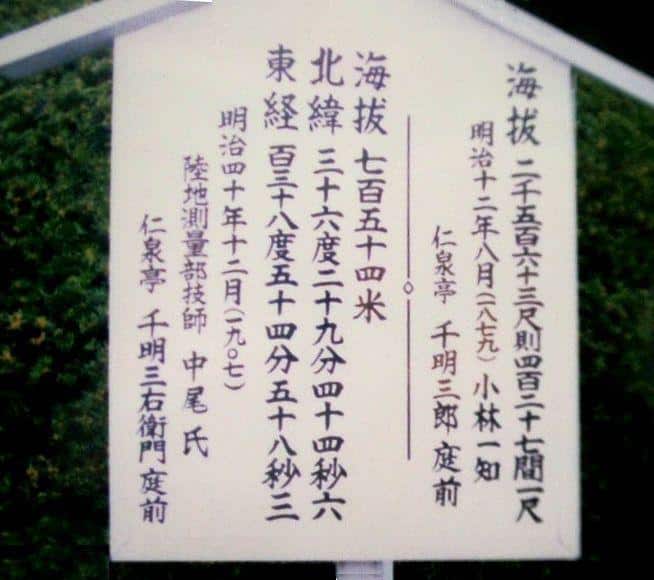 海抜 二千五百六十三尺則四百二十七間一尺
明治十二年八月(一八七九) 小林一知
仁泉亭 千明三郎 庭前
海抜 七百五十四米
北緯 三十六度二十九分四十四秒六
東経 百三十八度五十四分五十八秒三
明治四十年十二月(一九〇七)
陸地測量部技師 中尾 氏
仁泉亭 千明三右衛門 庭前